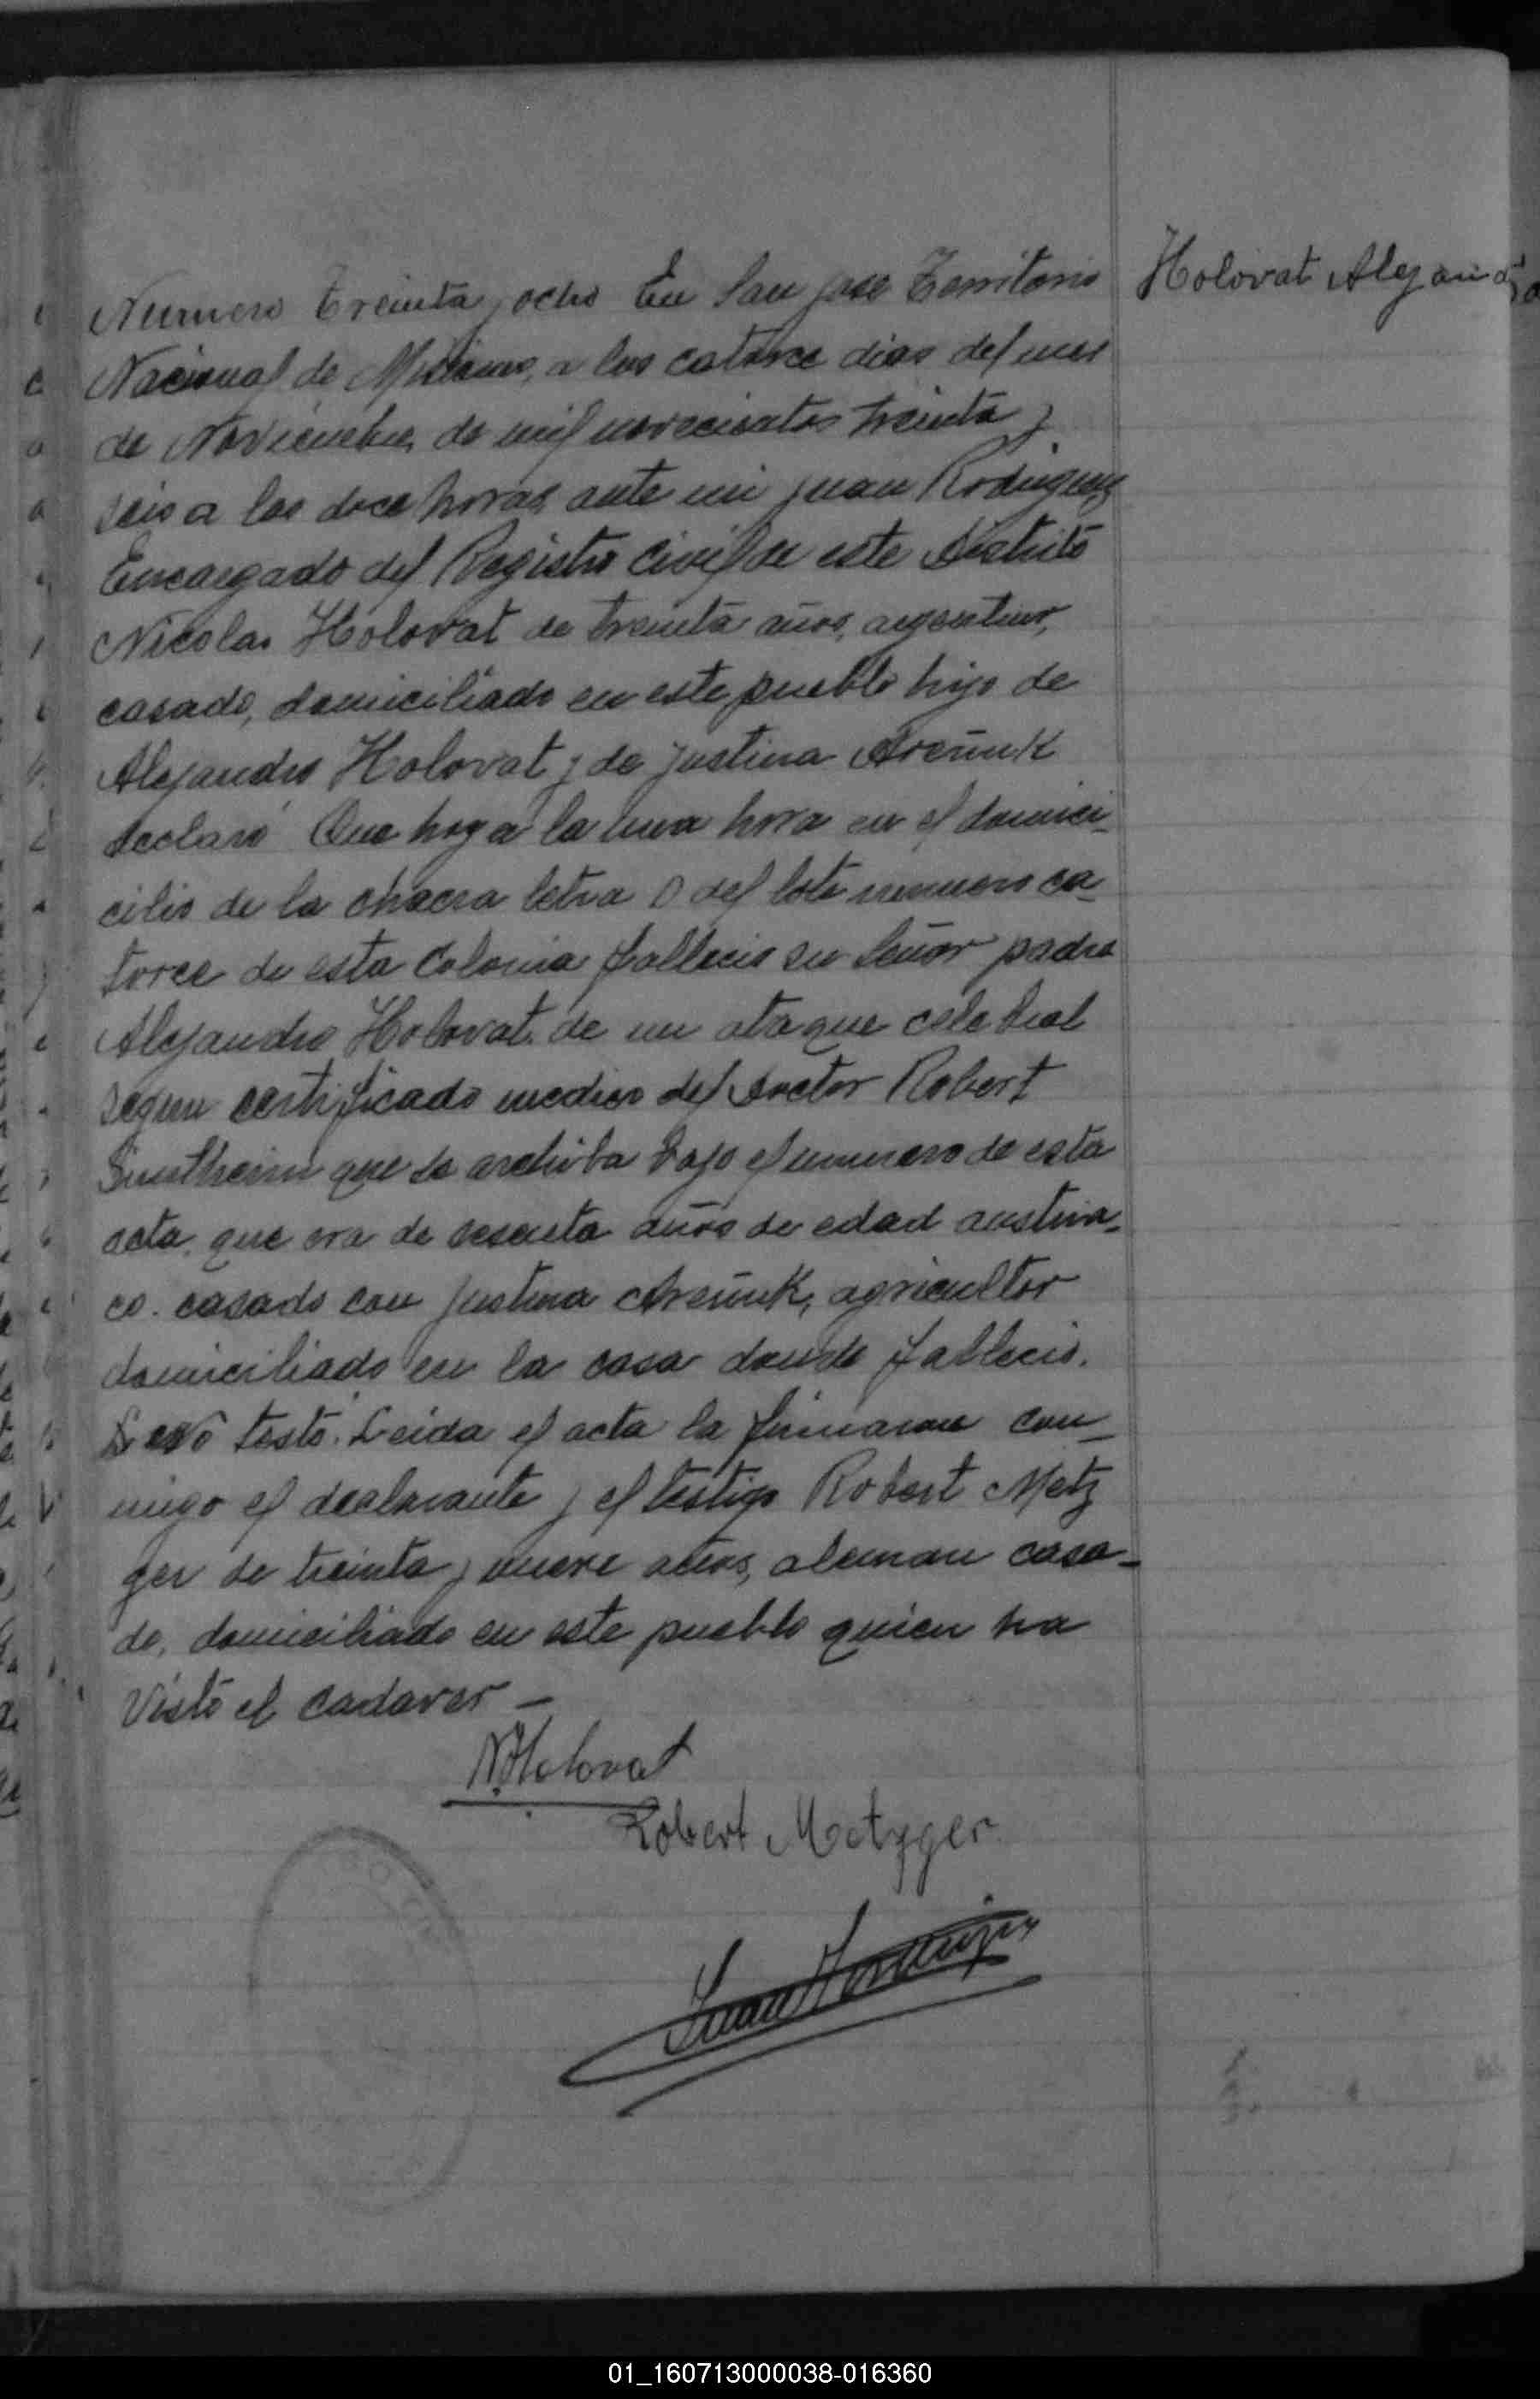 Holovat Alejandro
Numero treinta y ocho En San jose Territorio
Nacional de Misiones, a los catorce dias del mes
de Noviembre de mil novecientos treinta y
seis a las doce horas, ante mi juan Rodriguez
Encargado del Registro Civil de este distrito
Nicolas Holovat de treinta años, argentino,
casado, domiciliado en este pueblo hijo de
Alejandro Holovat y de justina
declaró Que hoy a la una hora en el domici-
cilio de la chacra letra D del lote numero ca-
torce de esta Colonia fallecio su Señor padre
Alejandro Holovat. de un ataque celebral
segun certificado medico del doctor Robert
que se archiba bajo el numero de esta
acta, que era de sesenta años de edad austria-
co. casado con justina agricultor
domiciliado en la casa donde fallecio.
testó. Leida el acta la firmaron con-
migo el declarante y el testigo Robert Metz
ger de treinta y nueve años, aleman casa-
do, domiciliado en este pueblo quien ha
visto el cadaver –
N. Holovat
Robert Metzger
Juan Rodriguez
01_160713000038-016360